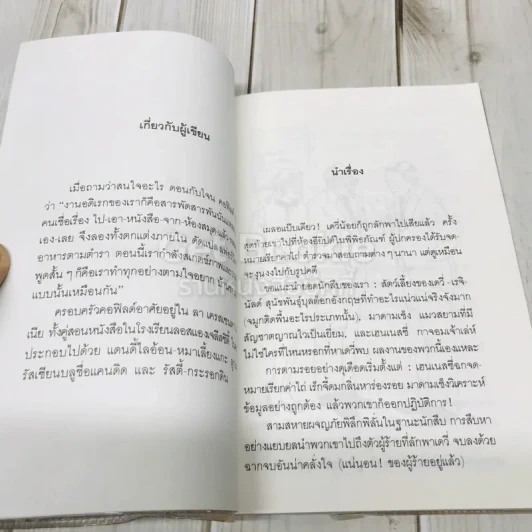 เกี่ยวกับผู้เขียน
เมื่อถามว่าสนใจอะไร ดอนกับโจน
ว่า "งานอดิเรกของเราก็คือสารพัดสารพัน
คนเชื่อเรื่อง ไป-เอา-หนังสือ-จาก-ห้องสมุด-แล้ว
เอง-เลย จึงลองทั้งตกแต่งภายใน ดัดแปลง
อาหารตามตำรา ตอนนี้เรากำลังสเกตช์ภาพ
พูดสั้น ๆ ก็คือเราทำทุกอย่างตามใจอยาก
แบบนั้นเหมือนกัน"
ครอบครัวคอฟิลด์อาศัยอยู่ใน ลา
เนีย ทั้งคู่สอนหนังสือในโรงเรียนลอสแองเจลีส
ประกอบไปด้วย แดนดี้ไลอ้อน-หมาเลี้ยงแกะ
รัสเซียนบลูชื่อแคนดิด และ รัสตี้-กระรอกดิน
นำเรื่อง
เผลอแป๊บเดียว! เดวี่น้อยก็ถูกลักพาไปเสียแล้ว ครั้ง
สุดท้ายเขาไปที่ห้องอียิปต์ในพิพิธภัณฑ์ ผู้ปกครองได้รับจด-
หมายเรียกค่าไถ่ ตำรวจมาสอบถามต่าง ๆ นานา แต่ดูเหมือน
จะงุนงงไปกับรูปคดี
ขอแนะนำยอดนักสืบของเรา : สัตว์เลี้ยงของเดวี่ -เรจิ-
นัลด์ สุนัขพันธุ์บุลด็อกอังกฤษที่ทำอะไรแน่วแน่จริงจังมาก
(จมูกติดพื้นอะไรประเภทนั้น), มาดามเซ็ง แมวสยามที่มี
สัญชาตญาณไวเป็นเยี่ยม, และเฮนเนสซี่ กาจอมเจ้าเล่ห์
ไม่ใช่ใครที่ไหนหรอกที่หาเดวี่พบ ผลงานของพวกนี้เองแหละ
การตามรอยอย่างดุเดือดเริ่มตั้งแต่ : เฮนเนสซี่ฉกจด-
หมายเรียกค่าไถ่ เร็กจี้ดมกลิ่นหาร่องรอย มาดามเซ็งวิเคราะห์
ข้อมูลอย่างถูกต้อง แล้วพวกเขาก็ออกปฏิบัติการ!
สามสหายผจญภัยพิลึกพิลั่นในฐานะนักสืบ การสืบหา
อย่างแยบยลนำพวกเขาไปถึงตัวผู้ร้ายที่ลักพาเดวี่ จบลงด้วย
ฉากจบอันน่าคลั่งใจ (แน่นอน! ของผู้ร้ายอยู่แล้ว)